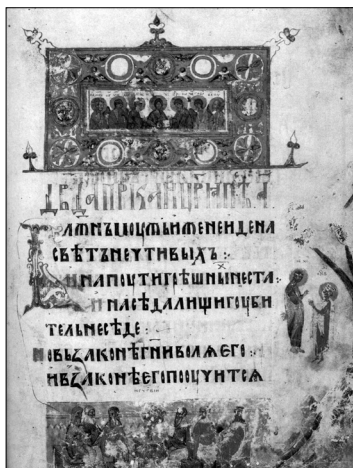 ДВДА ПРРКА И ЦРѦ ПѢ А
БЛЖНЪ МОУЖЬ ИЖЕ НЕ ИДЕ НА
СВѢТЪ НЕЧТИВЫХЪ :
И НА ПОУТИ ГРѢШНЫ НЕ СТА
И НА СѢДАЛИЩИ ГОУБИ
ТЕЛЬ НЕ СѢДЕ :
НО ВЪ ЗАКОНѢ ГНИ ВОЛѦ ЕГО
И В ЗАКОНѢ ЕГО ПООУЧИТСѦ